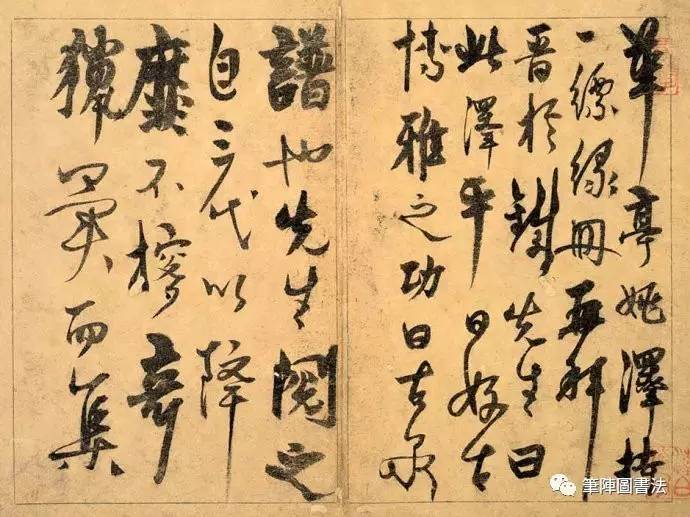 華亭姚澤持
一縹緣冊再拜
晉於鐵先生曰
此澤平日好古
博雅之功曰古泉
譜也先生閱之
自三代以降
靡不搜奇
獵異而集
筆陣圖書法